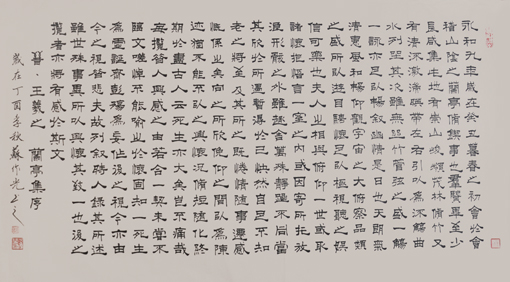 永和九年歲在癸丑暮春之初會於會
稽山陰之蘭亭脩禊事也羣賢畢至少
長咸集此地有崇山峻領茂林脩竹又
有清流激湍暎帶左右引以為流觴曲
水列坐其次雖無絲竹管弦之盛一觴
一詠亦足以暢叙幽情是日也天朗氣
清惠風和暢仰觀宇宙之大俯察品類
之盛所以遊目騁懷足以極視聽之娛
信可樂也夫人之相與俯仰一世或取
諸懷抱悟言一室之內或因寄所託放
浪形骸之外雖趣舍萬殊靜躁不同當
其欣於所遇暫得於己怏然自足不知
老之將至及其所之既惓情隨事遷感
慨係之矣向之所欣俛仰之間以為陳
迹猶不能不以之興懷況脩短隨化終
期於盡古人云死生亦大矣豈不痛哉
每攬昔人興感之由若合一契未嘗不
臨文嗟悼不能喻之於懷固知一死生
為虛誕齊彭殤為妄作後之視今亦由
今之視昔悲夫故列叙時人錄其所述
雖世殊事異所以興懷其致一也後之
攬者亦將有感於斯文
晉·王羲之 蘭亭集序
歲在丁酉年秋蘇作光